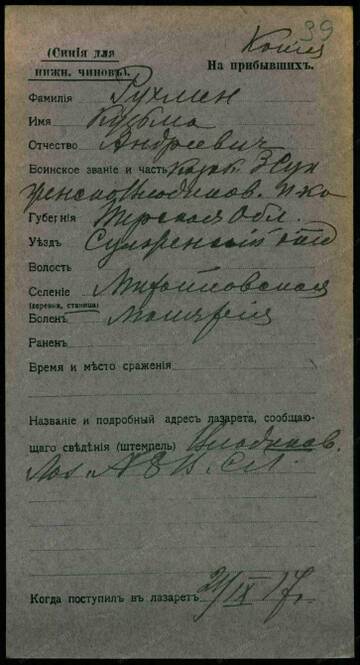 39
Копія
(Синія для
нижн. чиновъ).
На прибывшихъ.
Фамилія Рухмен
Имя Кузьма
Отчество Андреевич
Воинское званіе и часть Казак 3 Сун
женско Владиков. п-ка
Губернія Терская Обл.
Уѣздъ Сунженский
Волость
Селеніе Михайловская
(деревня, станица)
Боленъ Малярия
Раненъ
Время и мѣсто сраженія
Названіе и подробный адресъ лазарета, сообщаю-
щаго свѣдѣнія (штемпель) Владиков.
Когда поступилъ въ лазаретъ 21/IX 17 г.